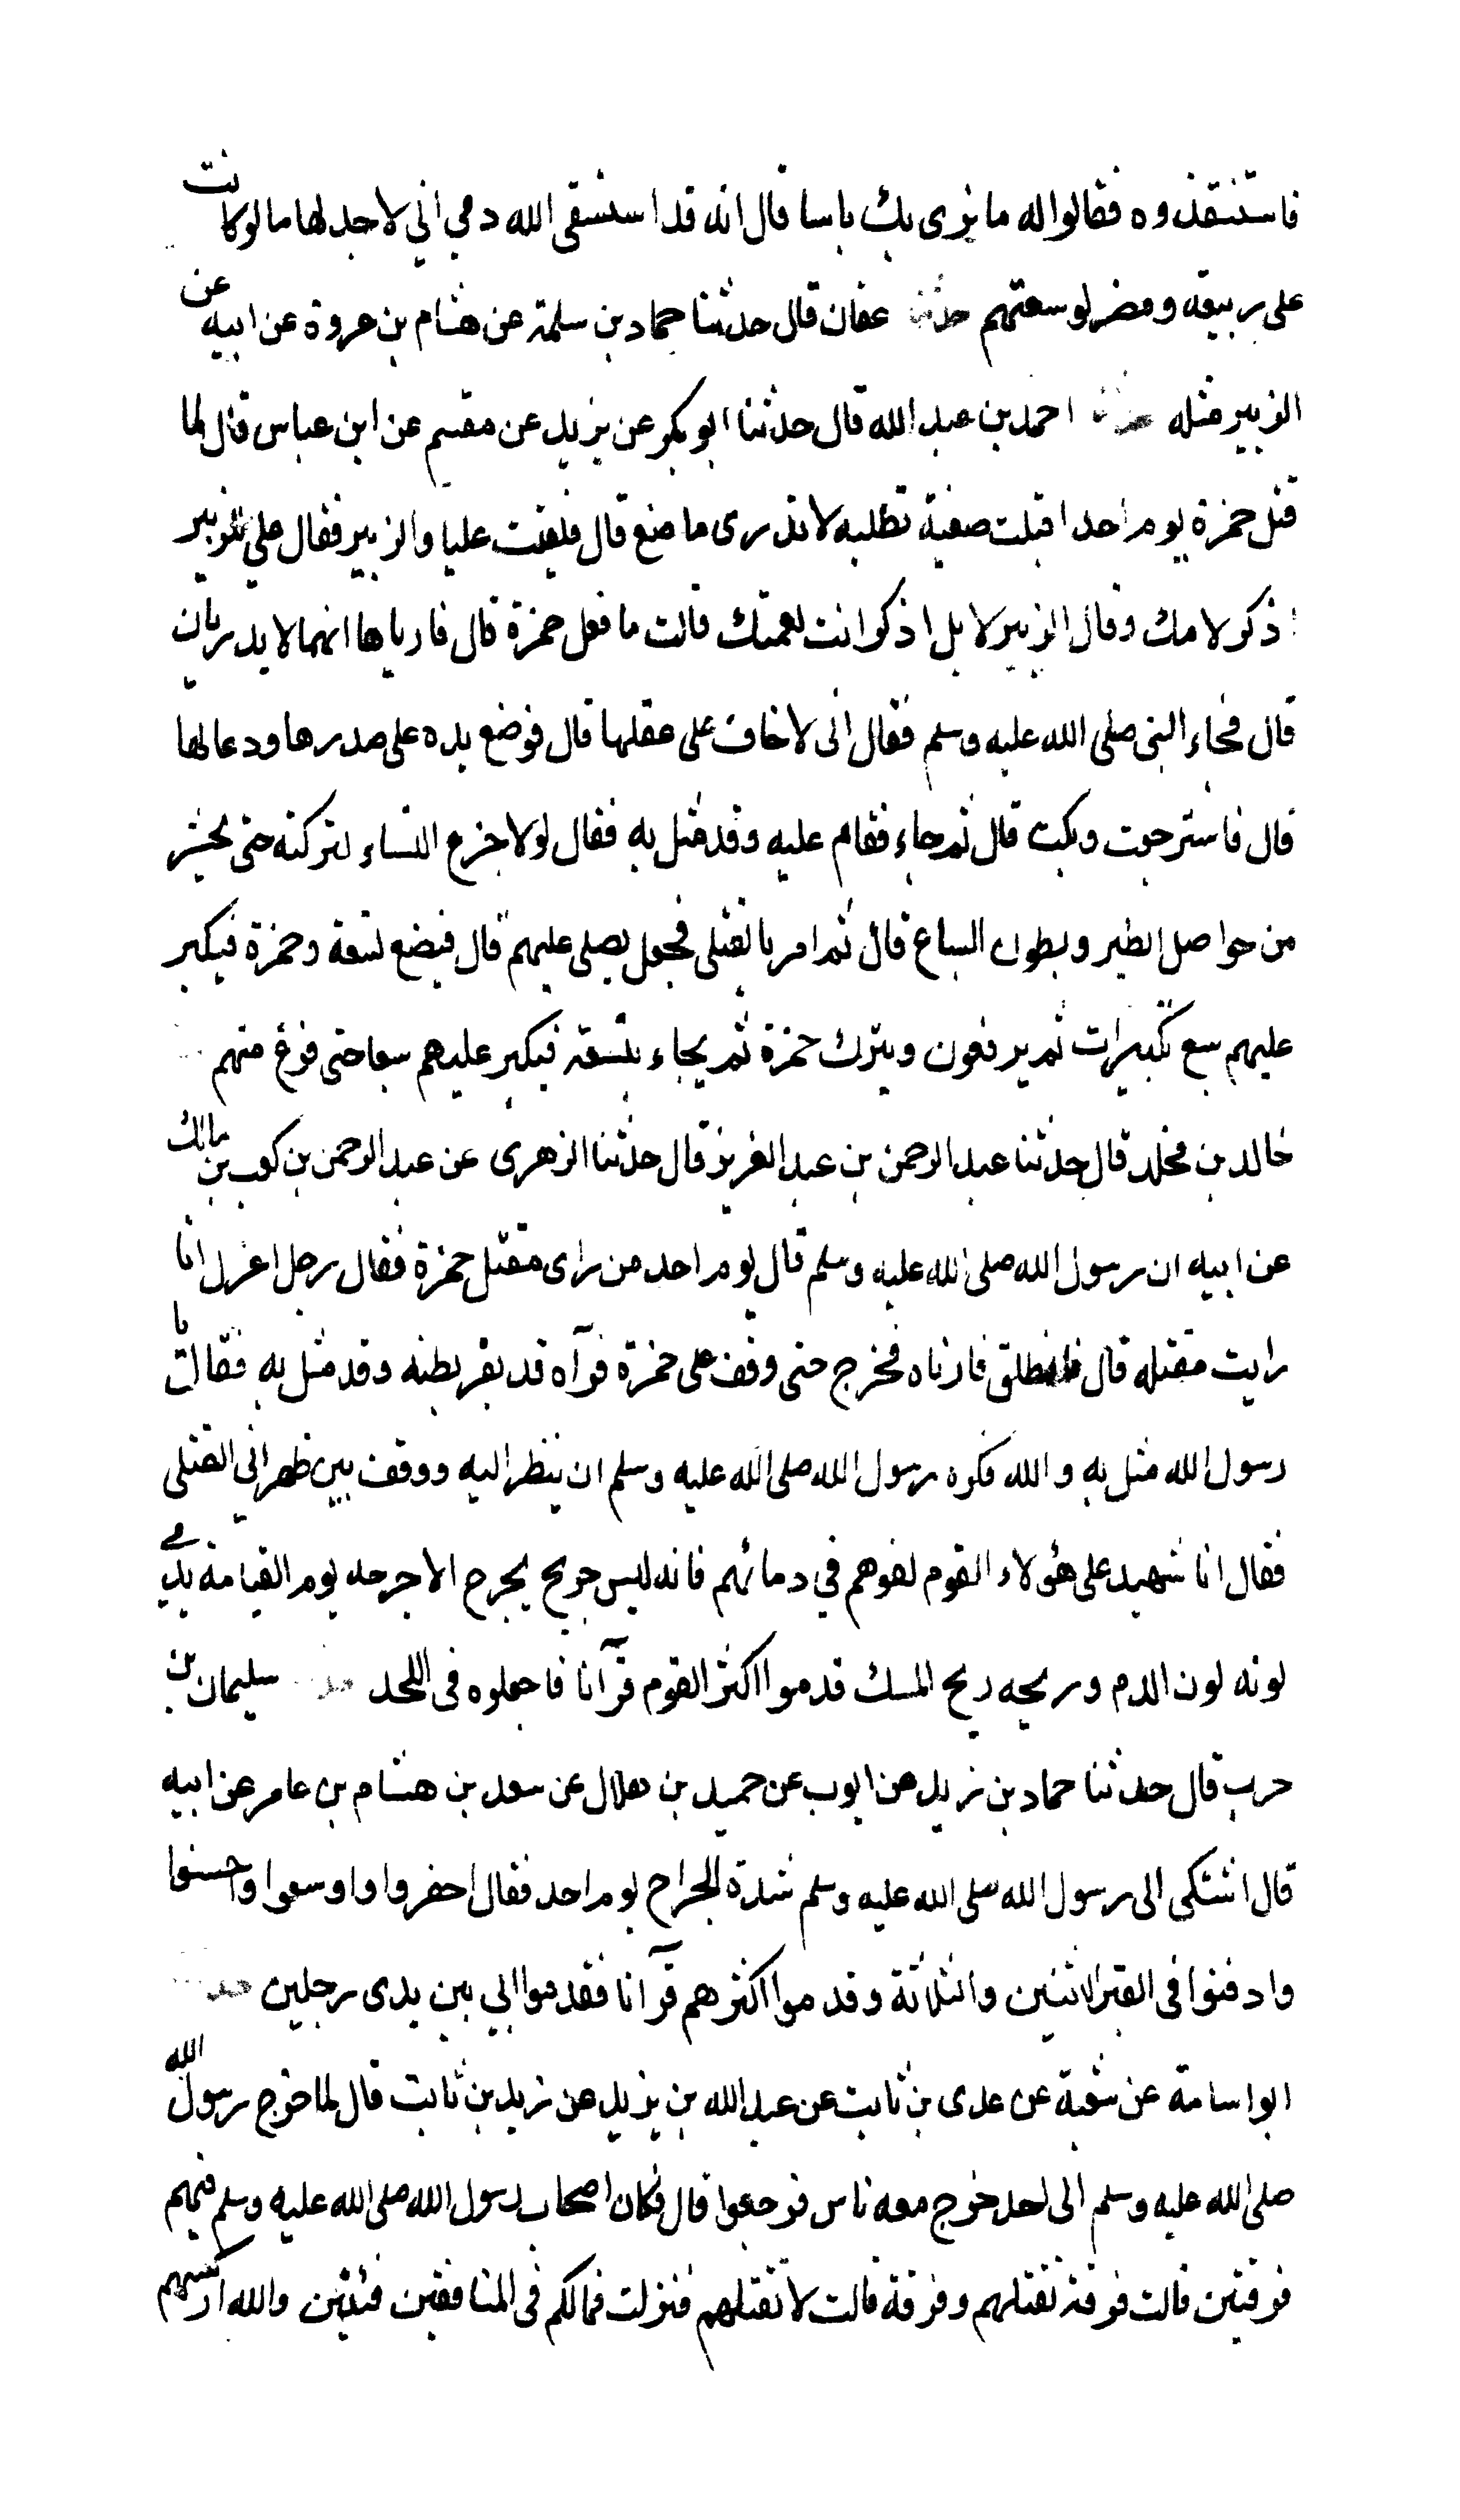 فاستنقذوه فقالوا له ما نرى بك باسا قال انه قد استسقى الله دمي اني لاجد لها ما لو كانت
على ربيعه ومضر لوسعتهم حدثنا عفان قال حدثنا حماد بن سلمة عن هشام بن عروة عن ابيه عن
الزبير مثله حدثنا احمد بن عبد الله قال حدثنا ابو بكر عن يزيد عن مقسم عن ابن عباس قال لما
قتل حمزة يوم احد اقبلت صفية تطلبه لا تدرى ما صنع قال فلقيت عليا والزبير فقال علي للزبير
اذكر لامك وقال الزبير لا بل اذكر انت لعمتك قالت ما فعل حمزة قال فارياها انهما لا يدريان
قال فجاء النبى صلى الله عليه وسلم فقال انى لاخاف على عقلها قال فوضع يده على صدرها ودعا لها
قال فاسترجعت وبكت قال ثم جاء فقام عليه وقد مثل به فقال لولا جزع النساء لتركته حتى يحشر
من حواصل الطير وبطون السباع قال ثم امر بالقتلى فجعل يصلى عليهم قال فيضع تسعة وحمزة فيكبر
عليهم سبع تكبيرات ثم يرفعون ويترك حمزة ثم يجاء بتسعة فيكبر عليهم سبعا حتى فرغ منهم
خالد بن مخلد قال حدثنا عبد الرحمن بن عبد العزيز قال حدثنا الزهرى عن عبد الرحمن بن كعب بن مالك
عن ابيه ان رسول الله صلى الله عليه وسلم قال يوم احد من راى مقتل حمزة فقال رجل اعزل انا
رايت مقتله قال فانطلق فارناه فخرج حتى وقف على حمزة فرآه قد بقر بطنه وقد مثل به فقال يا
رسول الله مثل به والله فكره رسول الله صلى الله عليه وسلم ان ينظر اليه ووقف بين ظهراني القتلى
فقال انا شهيد على هؤلاء القوم لفوهم في دمائهم فانه ليس جريح يجرح الا جرحه يوم القيامة يدمي
لونه لون الدم وريحه ريح المسك قدموا اكثر القوم قرآنا فاجعلوه فى اللحد حدثنا سليمان بن
حرب قال حدثنا حماد بن زيد عن ايوب عن حميد بن هلال عن سعد بن هشام بن عامر عن ابيه
قال اشتكى الى رسول الله صلى الله عليه وسلم شدة الجراح يوم احد فقال احفروا واوسعوا واحسنوا
وادفنوا فى القبر الاثنين والثلاثة وقدموا اكثرهم قرآنا فقدموا ابي بين يدى رجلين حدثنا
ابو اسامة عن شعبة عن عدى بن ثابت عن عبد الله بن يزيد عن زيد بن ثابت قال لما خرج رسول الله
صلى الله عليه وسلم الى احد خرج معه ناس فرجعوا قال فكان اصحاب رسول الله صلى الله عليه وسلم فيهم
فرقتين قالت فرقة نقتلهم وفرقة قالت لا نقتلهم فنزلت فمالكم فى المنافقين فئتين والله اركسهم